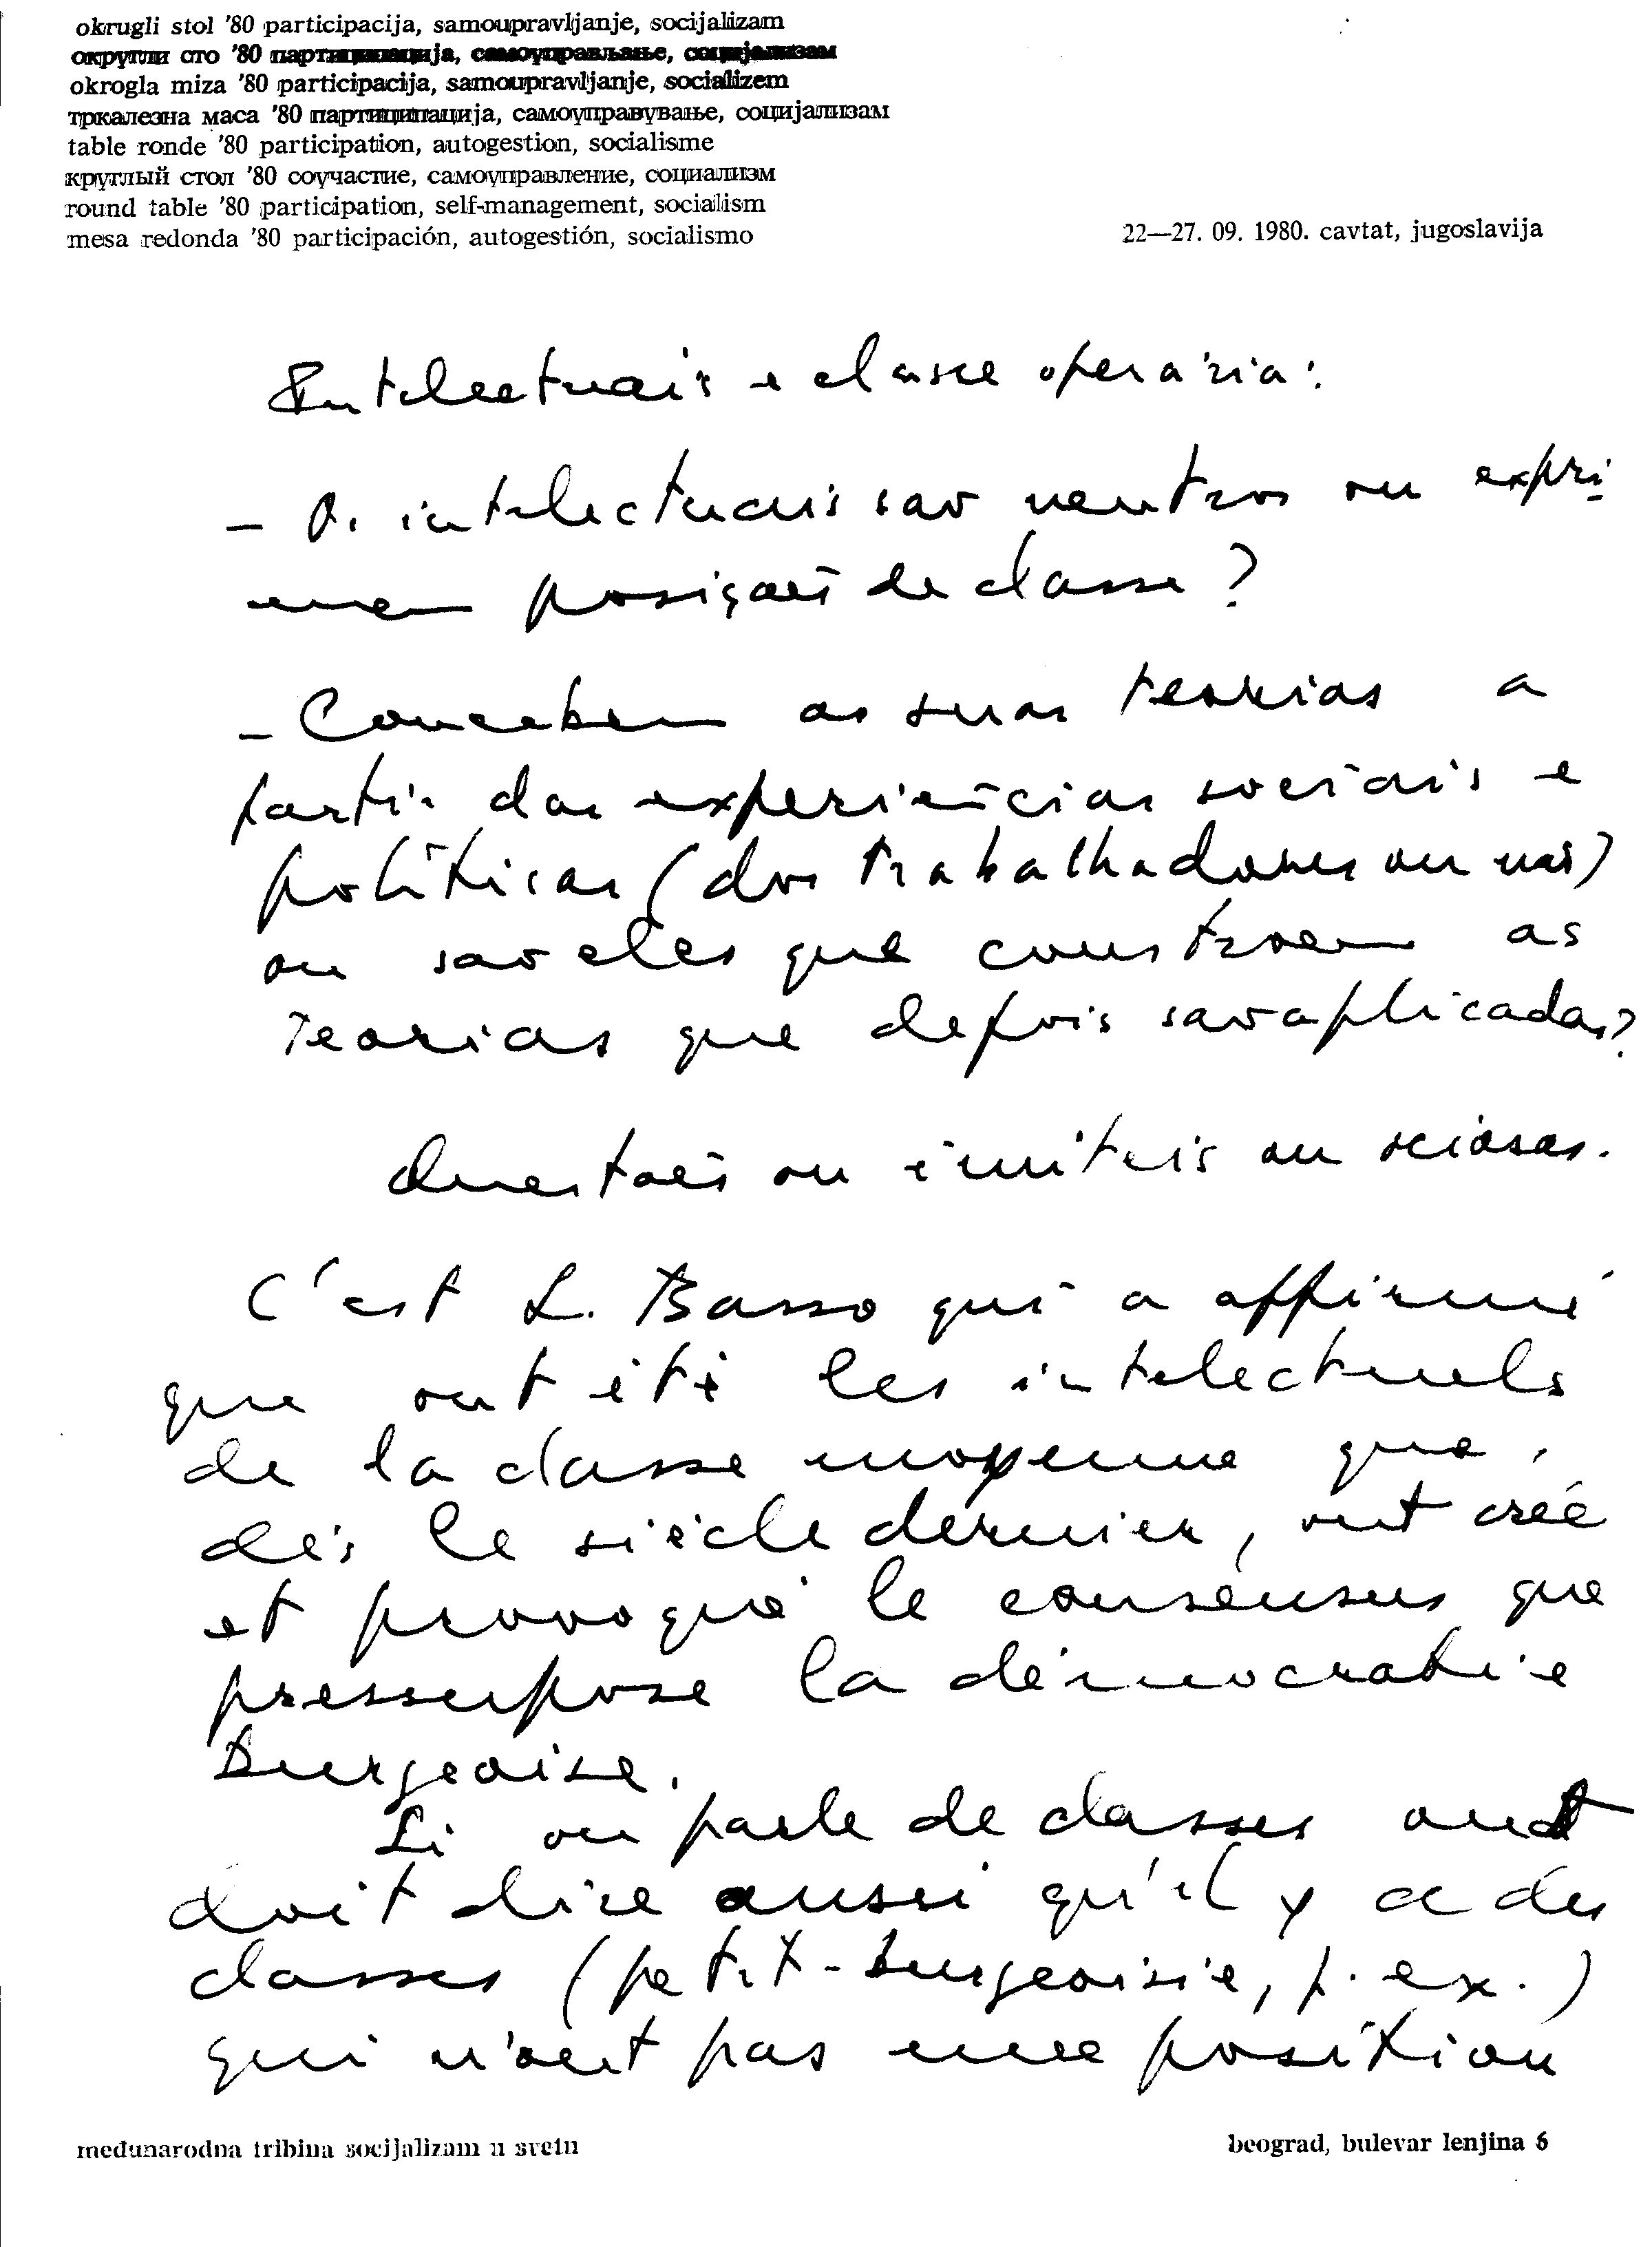 okrugli stol '80 participacija, samoupravljanje, socijalizam
округли сто '80 партиципација, самоуправљање, социјализам
okrogla miza '80 participacija, samoupravljanje, socializem
тркалезна маса '80 партиципација, самоуправување, социјализам
table ronde '80 participation, autogestion, socialisme
круглый стол '80 соучастие, самоуправление, социализм
round table '80 participation, self-management, socialism
mesa redonda '80 participación, autogestión, socialismo
22—27. 09. 1980. cavtat, jugoslavija
Intelectuais e classe operária:
– Os intelectuais sao neutros ou expri
mem posiçoes de classe?
– Concebem as suas teorias a
partir das experiências sociais e
políticas (dos trabalhadores ou nao)
ou sao eles que constroem as
teorias que depois sao aplicadas?
Questoes ou inúteis ou ociosas.
C'est L. Basso qui a affirmé
que ont été les intelectuels
de la classe moyenne que,
dés le siècle dernier, ont créé
et provoqué le consensus que
pressupose la démocratie
burgeoise.
Si on parle de classes on
doit dire aussi qu'il y a des
classes (petit-burgeoisie, p. ex.)
qui n'ont pas une position
međunarodna tribina socijalizam u svetu
beograd, bulevar lenjina 6